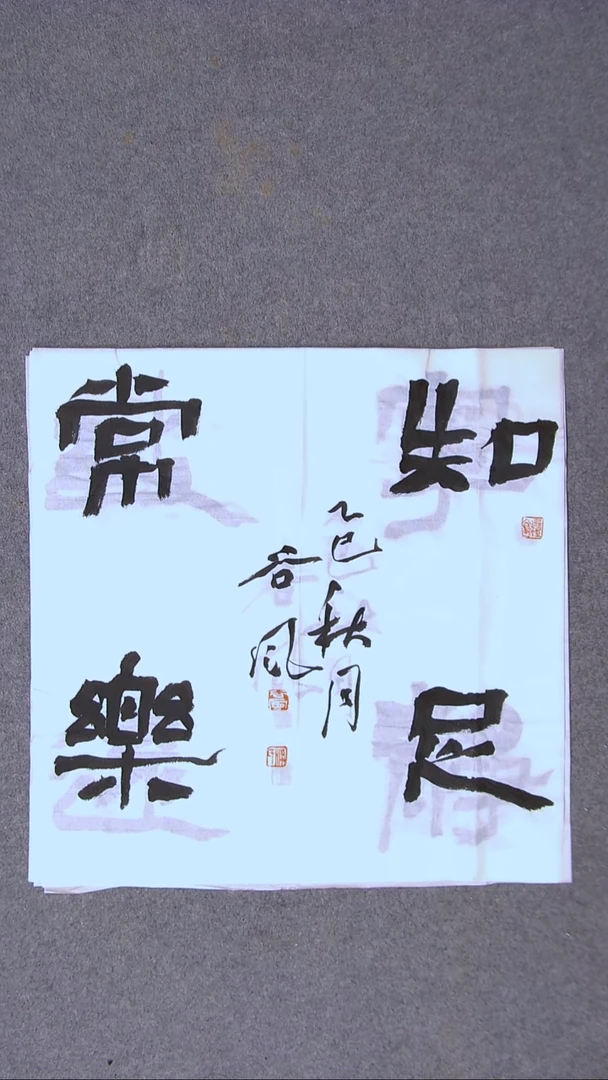 知足
常樂
乙巳秋月
谷风